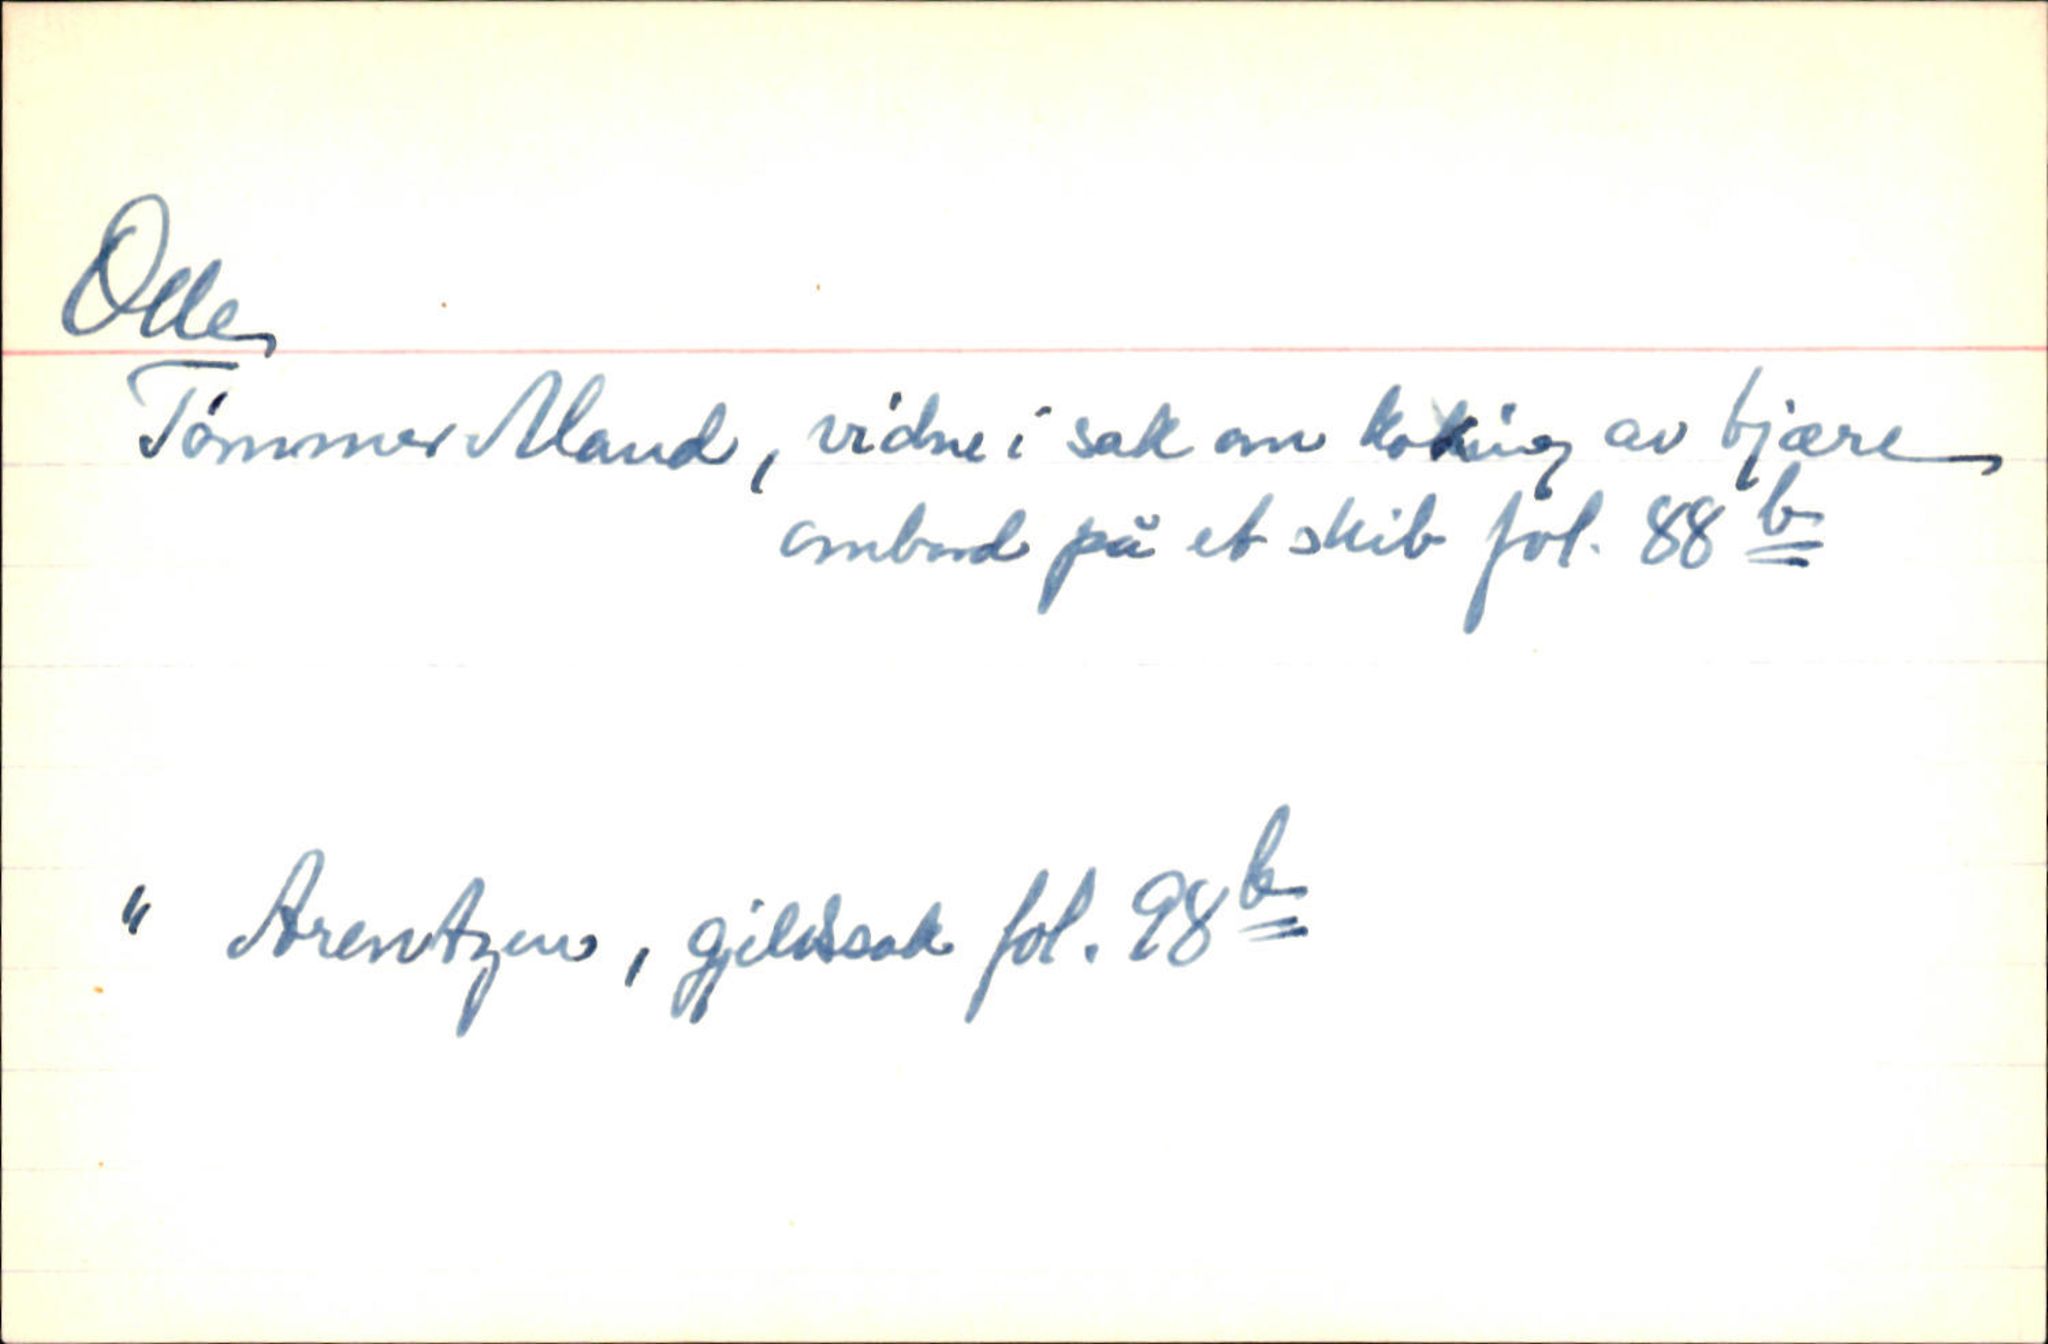 Olle
Tömmer Mand, vidne i sak om koking av tjære
ombord på et skib fol. 88 b
" Arentzen, gjeldssak fol. 98 b